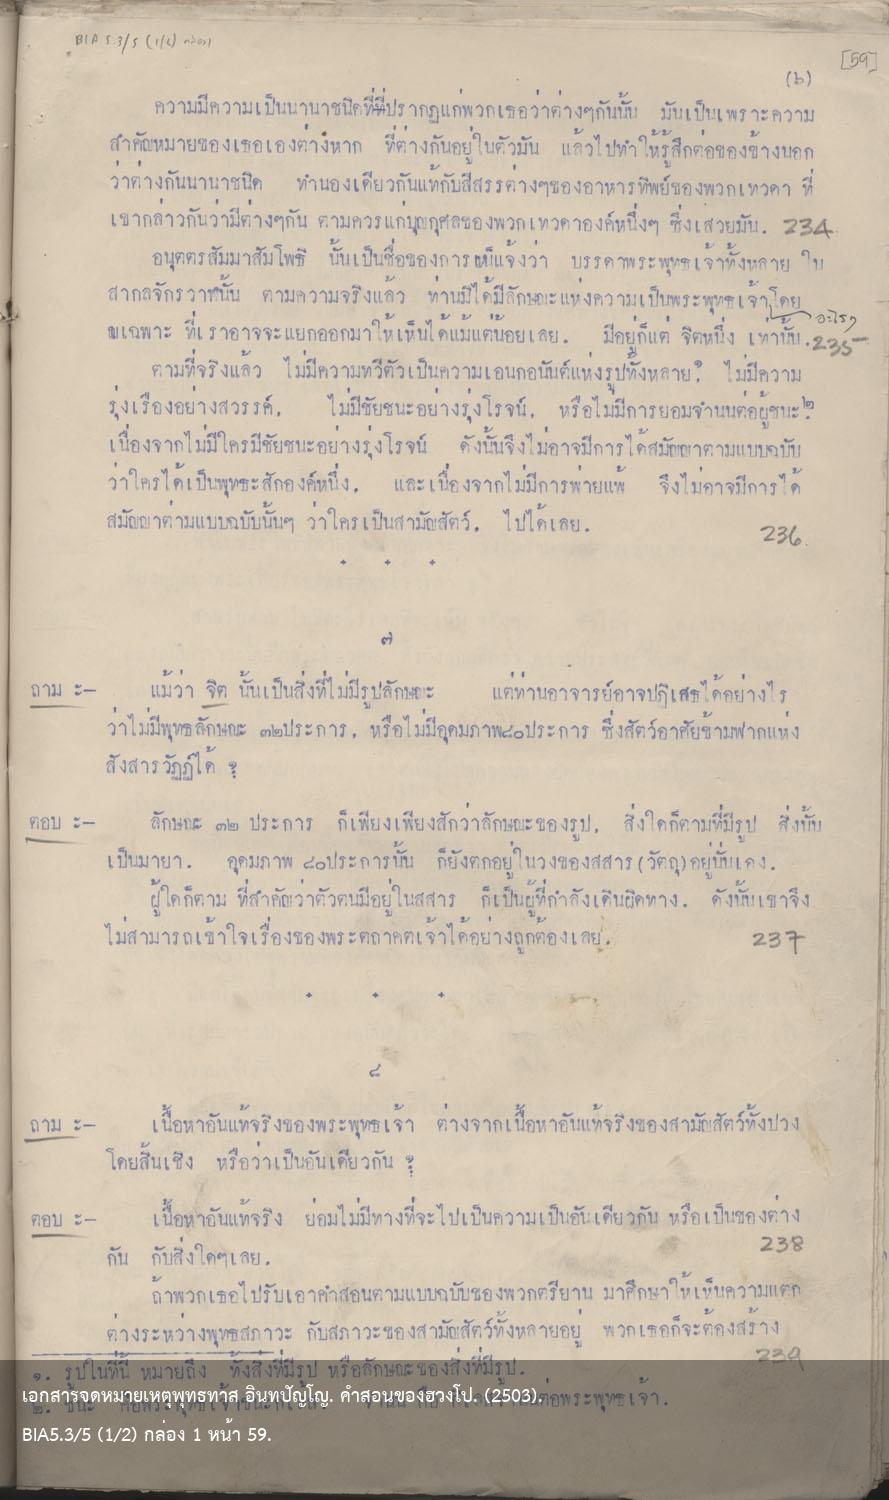 BIA 5.3/5 (1/2) กล่อง 1
[59]
(๖)
ความมีความเป็นนานาชนิดที่ที่ปรากฏแก่พวกเธอว่าต่างๆกันนั้น มันเป็นเพราะความ
สำคัญหมายของเธอเองต่างหาก ที่ต่างกันอยู่ในตัวมัน แล้วไปทำให้รู้สึกต่อของข้างนอก
ว่าต่างกันนานาชนิด ทำนองเดียวกันแท้กับสีสรรต่างๆของอาหารทิพย์ของพวกเทวดา ที่
เขากล่าวกันว่ามีต่างๆกัน ตามควรแก่บุญกุศลของพวกเทวดาองค์หนึ่งๆ ซึ่งเสวยมัน. 234
อนุตตรสัมมาสัมโพธิ นั้นเป็นชื่อของการเห็นแจ้งว่า บรรดาพระพุทธเจ้าทั้งหลาย ใน
สากลจักรวาฬนั้น ตามความจริงแล้ว ท่านมิได้มีลักษณะแห่งความเป็นพระพุทธเจ้าโดย
อะไรๆ
เฉพาะ ที่เราอาจจะแยกออกมาให้เห็นได้แม้แต่น้อยเลย. มีอยู่ก็แต่ จิตหนึ่ง เท่านั้น. 235
ตามที่จริงแล้ว ไม่มีความทวีตัวเป็นความเอนกอนันต์แห่งรูปทั้งหลาย๑ ไม่มีความ
รุ่งเรืองอย่างสวรรค์, ไม่มีชัยชนะอย่างรุ่งโรจน์, หรือไม่มีการยอมจำนนต่อผู้ชนะ.๒
เนื่องจากไม่มีใครมีชัยชนะอย่างรุ่งโรจน์ ดังนั้นจึงไม่อาจมีการได้สมัญญาตามแบบฉบับ
ว่าใครได้เป็นพุทธะสักองค์หนึ่ง, และเนื่องจากไม่มีการพ่ายแพ้ จึงไม่อาจมีการได้
สมัญญาตามแบบฉบับนั้นๆ ว่าใครเป็นสามัญสัตว์, ไปได้เลย.
236
๗
ถาม :- แม้ว่า จิต นั้นเป็นสิ่งที่ไม่มีรูปลักษณะ แต่ท่านอาจารย์อาจปฏิเสธได้อย่างไร
ว่าไม่มีพุทธลักษณะ ๓๒ประการ, หรือไม่มีอุดมภาพ๘๐ประการ ซึ่งสัตว์อาศัยข้ามฟากแห่ง
สังสารวัฏฏ์ได้ ?
ตอบ :- ลักษณะ ๓๒ ประการ ก็เพียงเพียงสักว่าลักษณะของรูป, สิ่งใดก็ตามที่มีรูป สิ่งนั้น
เป็นมายา. อุดมภาพ ๘๐ประการนั้น ก็ยังตกอยู่ในวงของสสาร(วัตถุ)อยู่นั่นเอง.
ผู้ใดก็ตาม ที่สำคัญว่าตัวตนมีอยู่ในสสาร ก็เป็นผู้ที่กำลังเดินผิดทาง. ดังนั้นเขาจึง
ไม่สามารถเข้าใจเรื่องของพระตถาคตเจ้าได้อย่างถูกต้องเลย. 237
๘
ถาม :- เนื้อหาอันแท้จริงของพระพุทธเจ้า ต่างจากเนื้อหาอันแท้จริงของสามัญสัตว์ทั้งปวง
โดยสิ้นเชิง หรือว่าเป็นอันเดียวกัน ?
ตอบ :- เนื้อหาอันแท้จริง ย่อมไม่มีทางที่จะไปเป็นความเป็นอันเดียวกัน หรือเป็นของต่าง
กัน กับสิ่งใดๆเลย. 238
ถ้าพวกเธอไปรับเอาคำสอนตามแบบฉบับของพวกตรียาน มาศึกษาให้เห็นความแตก
ต่างระหว่างพุทธสภาวะ กับสภาวะของสามัญสัตว์ทั้งหลายอยู่ พวกเธอก็จะต้องสร้าง
239
๑. รูปในที่นี้ หมายถึง ทั้งสิ่งที่มีรูป หรือลักษณะของสิ่งที่มีรูป.
๒. ชนะ คือพระพุทธเจ้าชนะ ต่อพระพุทธเจ้า.
เอกสารจดหมายเหตุพุทธทาส อินฺทปัญฺโญ. คำสอนของฮวงโป. (2503).
BIA5.3/5 (1/2) กล่อง 1 หน้า 59.